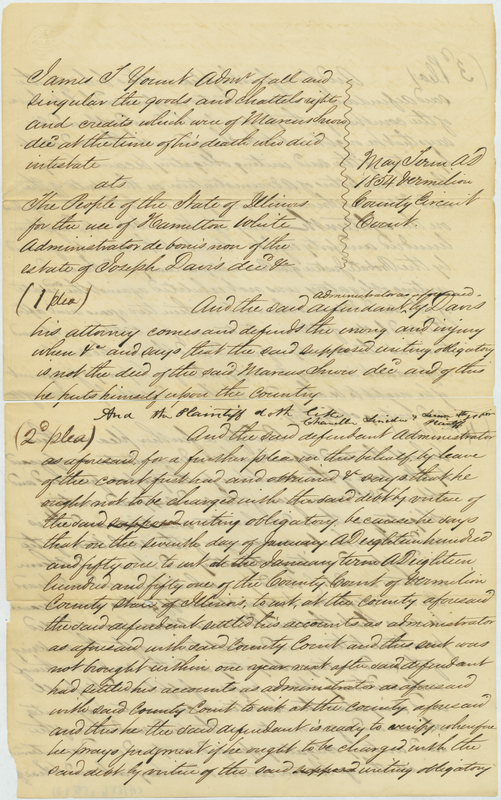 James T Yount Admr of all and
singular the goods and chattels rights
and credits which were of Marcus Snow
decd at the time of his death who died
intestate
ats
The People of the State of Illinois
for the use of Hamilton White
Administrator de bonis non of the
estate of Joseph Davis decd &c
May Term AD
1854 Vermilion
County Circuit
Court.
(1 plea) And the said defendant administrator as aforesaid by Davis
his attorney comes and defends the wrong and injury
when &c and says that the said supposed writing obligatory
is not the deed of the said Marcus Snow decd and of this
he puts himself upon the country
And the Plaintiff doth like
Chandler Lincoln & Lamon for plaintiff
(2d plea) And the said defendant Administrator
as aforesaid for a further plea in this behalf by leave
of the court first had and obtained &c says that he
ought not to be charged with the said debt by virtue of
the said supposed writing obligatory because he says
that on the seventh day of January AD eighteen hundred
and fifty one, to wit at the January term AD eighteen
hundred and fifty one of the County Court of Vermilion
County State of Illinois, to wit, at the county aforesaid
the said defendant settled his accounts as administrator
as aforesaid with said County Court and this suit was
not brought within one year next after said defendant
had settled his accounts as administrator as aforesaid
with said County Court to wit at the county aforesaid
and this he the said defendant is ready to verify wherefore
he prays judgment if he ought to be charged with the
said debt by virtue of the said supposed writing obligatory